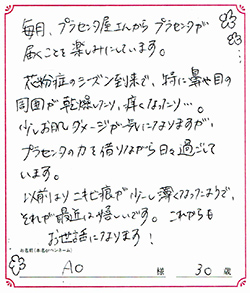 毎日、プラセンタ屋さんから プラセンタが
届くことを楽しみにしています。
花粉症のシーズン到来で、特に鼻や目の
周囲が乾燥したり、痒くなったり…。
少しお肌ダメージが気になりますが、
プラセンタの力を借りながら日々過ごして
います。
以前よりニキビ痕が少し薄くなったようで、
それが最近は嬉しいです。これからも
お世話になります!
お名前(本名orペンネーム)
AO 様 30 歳